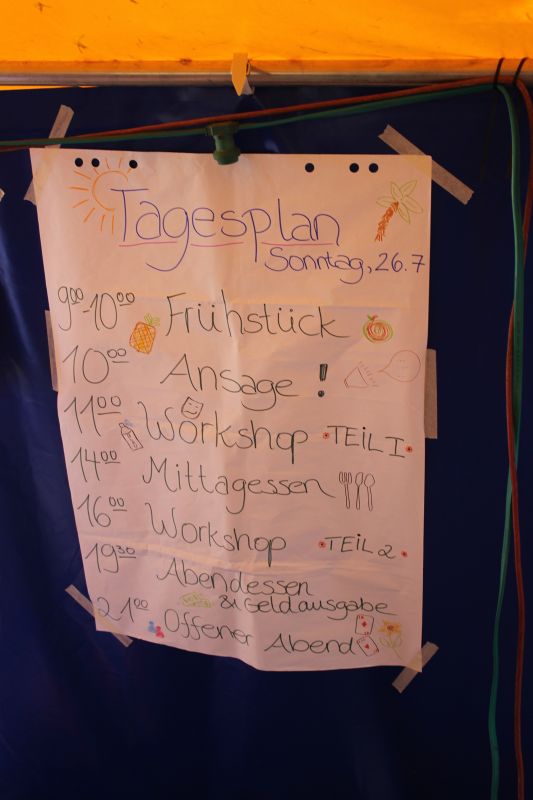 Tagesplan
Sonntag, 26.7
9⁰⁰-10⁰⁰ Frühstück
10⁰⁰ Ansage !
11⁰⁰ Workshop • TEIL I •
14⁰⁰ Mittagessen
16⁰⁰ Workshop • TEIL 2 •
19³⁰ Abendessen
& Geldausgabe
21⁰⁰ Offener Abend